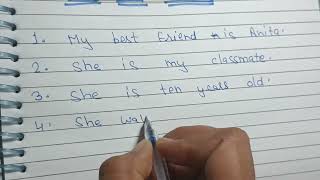 1. My best friend is Anita.
2. She is my classmate.
3. She is ten years old.
4. She